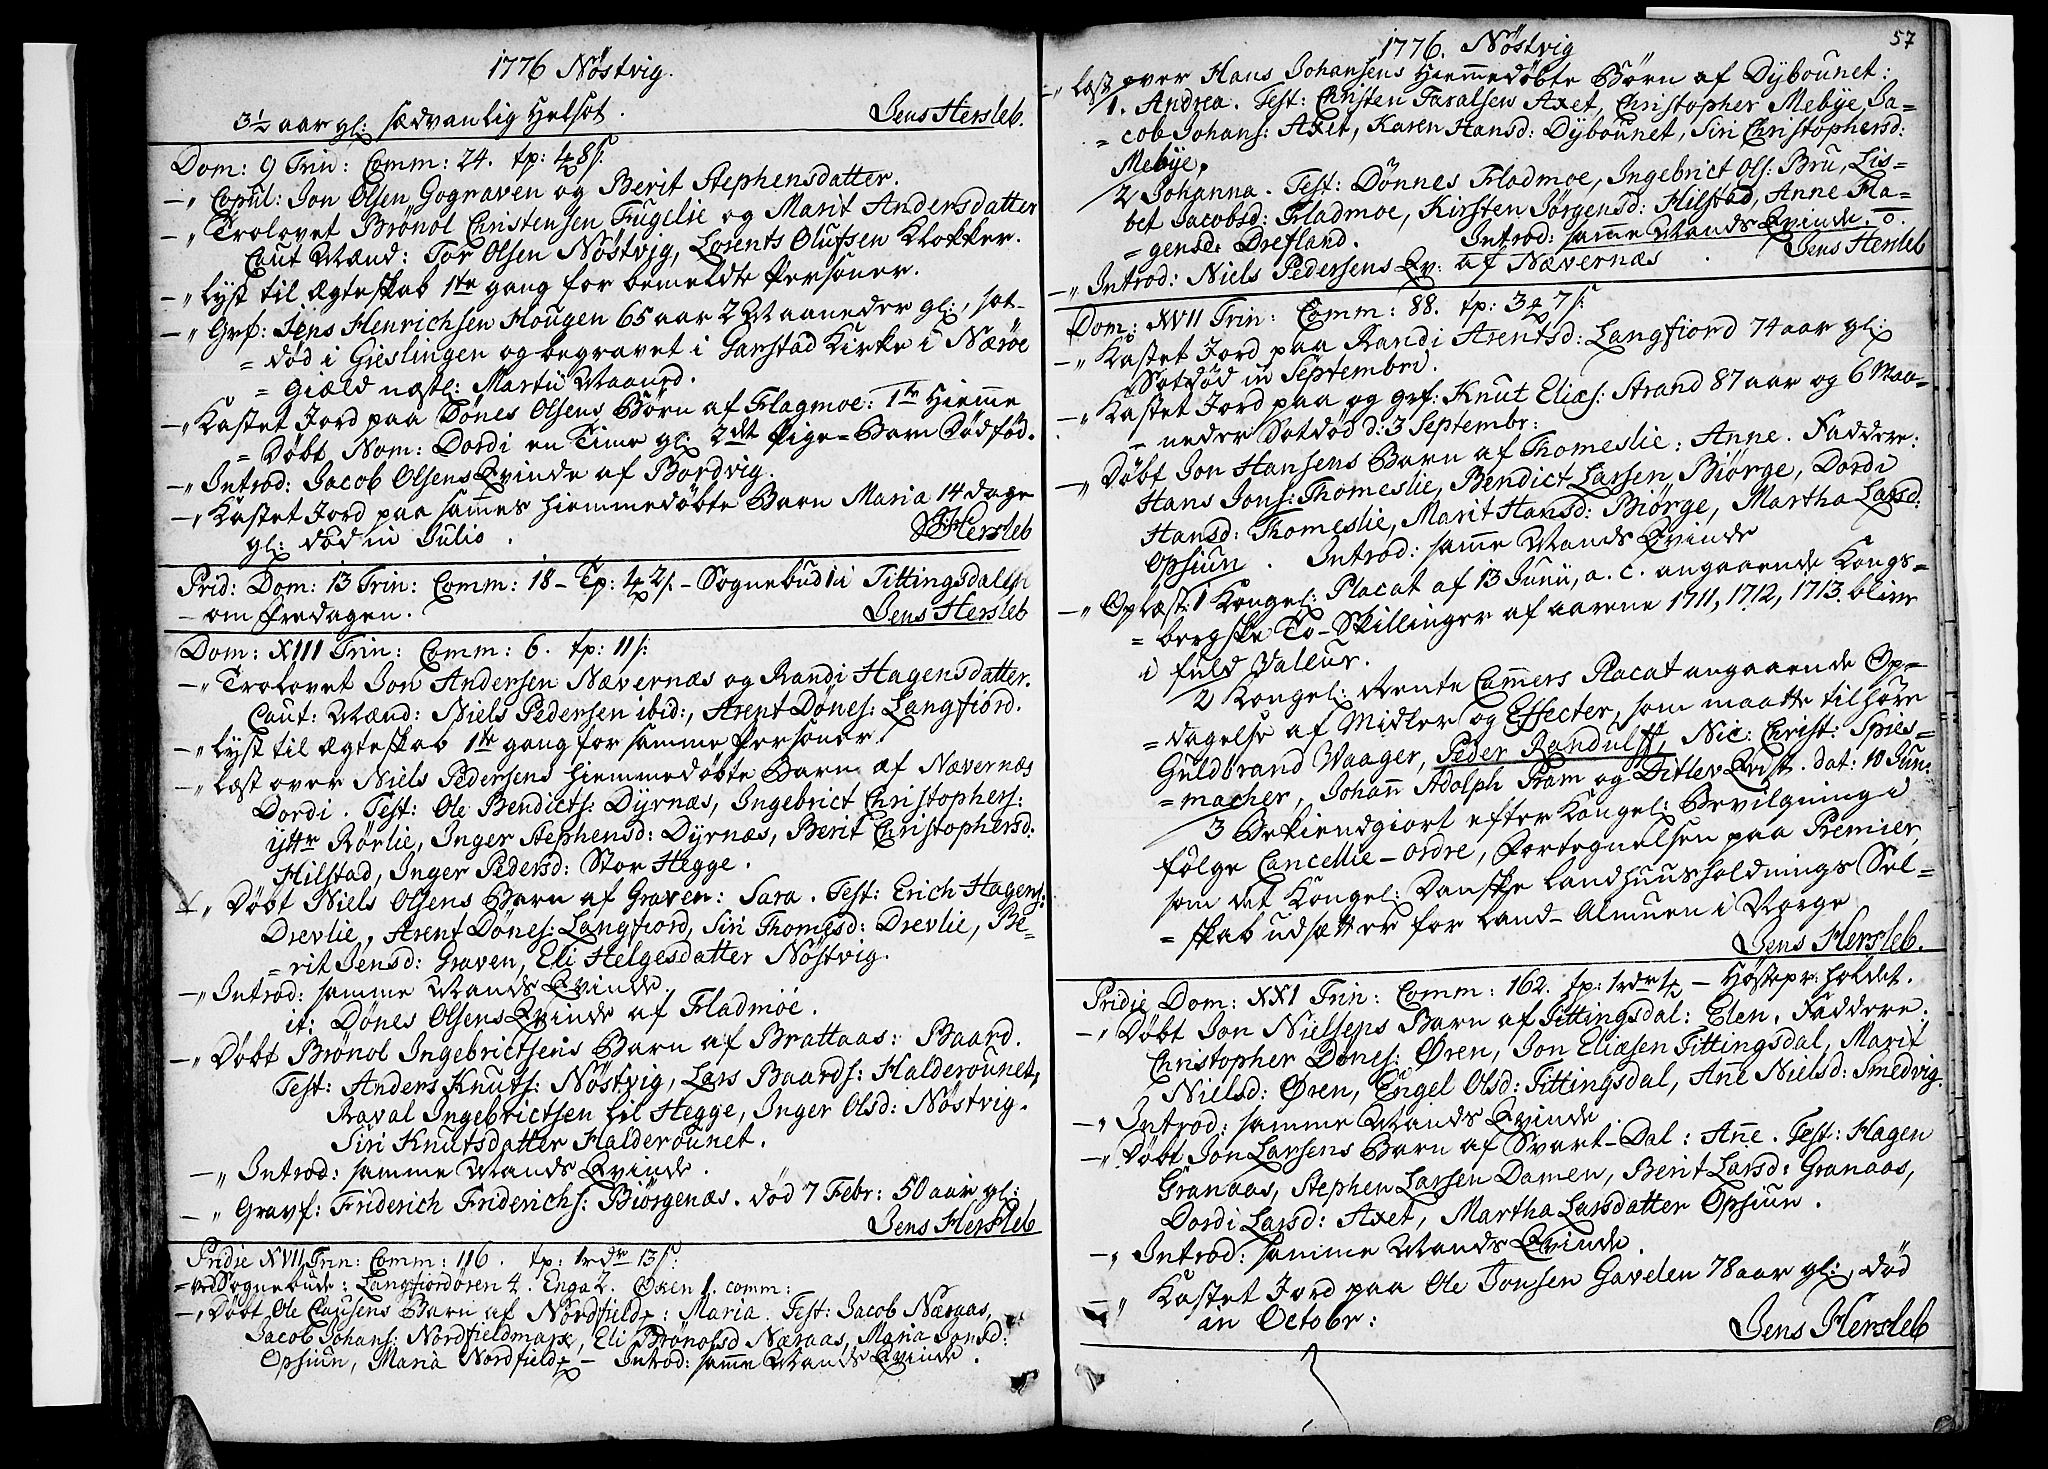 1776 Nöstvig.
3½ aar gl: sædvanlig Helsot.
Jens Hersleb.
Dom: 9 Trin: Comm: 24. tp: 4 8 s:
–„ Copul: Jon Olsen Gograven og Berit Stephensdatter.
–„ Trolovet Brönol Christensen Fugelie og Marit Andersdatter
Caut Mænd: Tor Olsen Nöstvig, Lorents Olufsen Klokker.
–„ Lyst til Ægteskab 1te gang for bemeldte Personer.
–„ Grf: Jens Henrichsen Hougen 65 aar 2 Maaneder gl:, sot-
= död i Gieslingen og begravet i Garstad Kirke i Næröe
= Giæld næstl: Martii Maaned.
–„ Kastet Jord paa Dönes Olsens Börn af Flagmoe: 1te Hiemme
= Döbt Nom: Dordi en Time gl: 2det Pige-Barn Dödfod.
–„ Introd: Jacob Olsens Qvinde af Bordvig.
–„ Kastet Jord paa sammes hiemmedöbte Barn Maria 14 dage
gl: död in Julio.
JHersleb
Prid: Dom: 13 Trin: Comm: 18 – Tp: 4 2 s. – Sognebud 1 i Tittingsdalen
– om Fredagen.
Jens Hersleb
Dom: XIII Trin: Comm: 6. tp: 11 s:
–„ Trolovet Jon Andersen Nævernæs og Randi Hagensdatter.
Caut: Mænd: Niels Pedersen ibid:, Arent Dönes: Langfiord.
–„ Lyst til Ægteskab 1te gang for samme Personer.
–„ Læst over Niels Pedersens hiemmedöbte Barn af Nævernæs
Dordi. Test: Ole Bendicts: Dyrnæs, Ingebrict Christophers:
ytter Rörlie, Inger Stephensd: Dyrnæs, Berit Christophersd:
Hilstad, Inger Pedersd: Stor Hegge.
–„ Döbt Niels Olsens Barn af Graven: Sara. Test: Erich Hagens:
Drevlie, Arent Dönes: Langfiord, Siri Thomesd: Drevlie, Be-
= rit Jensd: Graven, Eli Helgesdatter Nöstvig.
–„ Introd: samme Mands Qvinde.
it: Dönes Olsens Qvinde af Fladmoe.
–„ Döbt Brönol Ingebrictsens Barn af Brattaas: Baard.
Test: Anders Knuts: Nöstvig, Lars Baards: Halderounet,
Raval Ingebrictsen Lil Hegge, Inger Olsd: Nöstvig.
Siri Knutsdatter Halderounet.
–„ Introd: samme Mands Qvinde.
–„ Gravf: Friderich Friderichs: Biörgenæs. död 7 Febr: 50 aar gl:
Jens Hersleb
Pridie XVII Trin: Comm: 116. tp: 1rdr 13 s:
= ved Sognebude: Langfiordören 4. Enga 2. Ören 1. comm:
–„ Döbt Ole Clausens Barn af Nordfield: Maria. Test: Jacob Næraas,
Jacob Johans: Nordfieldmark, Eli Brönolsd Næraas, Maria Jonsd:
Opsiun, Maria Nordfield – Introd: samme Mands Qvinde.
57
1776. Nöstvig
–„ Læst over Hans Johansens Hiemmedöbte Börn af Dybounet:
1. Andrea. Test: Christen Taralsen Axet, Christopher Mebye, Ja-
= cob Johans: Axet, Karen Hansd: Dybounet, Siri Christophersd:
Mebye,
2 Johanna. Test: Dönnes Fladmoe, Ingebrict Ols: Bru, Lis-
bet Jacobsd: Fladmoe, Kirsten Jörgensd: Hilstad, Anne Ha-
= gensd: Drefland. Introd: samme Mands Qvinde.
–„ Introd: Niels Pedersens Qv: af Nævernæs.
Jens Hersleb
Dom: XVII Trin: Comm: 88. tp: 3 7 s:
–„ Kastet Jord paa Randi Arentsd: Langfiord 74 aar gl:
Sotdöd in Septembri.
–„ Kastet Jord paa og grf: Knut Elias: Strand 87 aar og 6 Maa-
= neder Sotdöd d: 3 Septembr:
–„ Döbt Jon Hansens Barn af Thomeslie: Anne. Faddere:
Hans Jons: Thomeslie, Bendict Larsen Biörge, Dordi
Hansd: Thomeslie, Marit Hansd: Biörge, Martha Larsd:
Opsiun. Introd: samme Mands Qvinde
–„ Oplæst: 1 Kongel: Placat af 13 Junii, a. c. angaaende Kongs-
= bergske To-Skillinger af aarene 1711, 1712, 1713. blive
i fuld Valeur.
2 Kongel: Rente Camers Placat angaaende Op-
= dagelse af Midler og Effecter, som maatte tilhöre
Guldbrand Waager, Peder Randulff, Nic: Christ: Spies-
= macher, Johan Adolph Pram og Ditlev Qvist. dat: 10 Jun:
3 Bekiendgiort efter Kongel: Bevilgning i
fölge Cancellie-ordre, Fortegnelsen paa Premier,
som det Kongel: Danske Landhuusholdnings Sel-
= skab udsætter for Land-Almuen i Norge
Jens Hersleb.
Pridie Dom: XXI Trin: Comm: 162. tp: 1rdr ½ – Höstepr: holdet.
–„ Döbt Jon Nielsens Barn af Tittingsdal: Elen. Faddere:
Christopher Dönes: Ören, Jon Eliæsen Tittingsdal, Marit
Nielsd: Ören, Engel Olsd: Tittingsdal, Ane Nielsd: Smedvig.
–„ Introd: samme Mands Qvinde.
–„ Döbt Jon Larsens Barn af Svart-Dal: Ane. Test: Hagen
Granaas, Stephen Larsen Damen, Berit Larsd: Granaas,
Dordi Larsd: Axet, Martha Larsdatter Opsiun.
–„ Introd: samme Mands Qvinde.
–„ Kastet Jord paa Ole Jonsen Gavelen 78 aar gl:, död
in Octobr:
Jens Hersleb